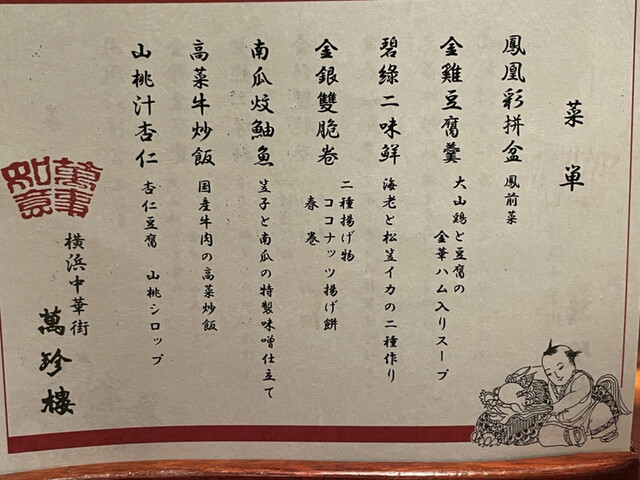 菜単
鳳凰彩拼盆 鳳前菜
金雞豆腐羹 大山鶏と豆腐の
金華ハム入りスープ
碧綠二味鮮 海老と松笠イカの二種作り
金銀雙脆卷 二種揚げ物
ココナッツ揚げ餅
春巻
南瓜炆鮋魚 笠子と南瓜の特製味噌仕立て
高菜牛炒飯 国産牛肉の高菜炒飯
山桃汁杏仁 杏仁豆腐 山桃シロップ
萬事如意
横浜中華街
萬珍樓